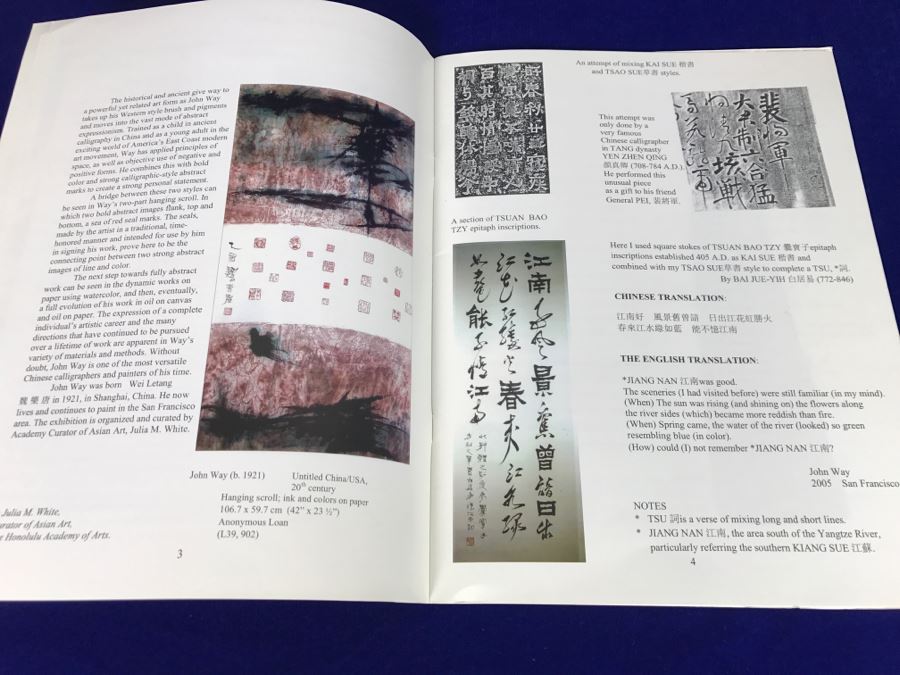 The historical and ancient give way to
a powerful yet related art form as John Way
takes up his Western style brush and pigments
and moves into the vast mode of abstract
expressionism. Trained as a child in ancient
calligraphy in China and as a young adult in the
exciting world of America's East Coast modern
art movement, Way has applied principles of
space, as well as objective use of negative and
positive forms. He combines this with bold
color and strong calligraphic-style abstract
marks to create a strong personal statement.
A bridge between these two styles can
be seen in Way's two-part hanging scroll. In
which two bold abstract images flank, top and
bottom, a sea of red seal marks. The seals,
made by the artist in a traditional, time-
honored manner and intended for use by him
in signing his work, prove here to be the
connecting point between two strong abstract
images of line and color.
The next step towards fully abstract
work can be seen in the dynamic works on
paper using watercolor, and then, eventually,
a full evolution of his work in oil on canvas
and oil on paper. The expression of a complete
individual's artistic career and the many
directions that have continued to be pursued
over a lifetime of work are apparent in Way's
variety of materials and methods. Without
doubt, John Way is one of the most versatile
Chinese calligraphers and painters of his time.
John Way was born Wei Letang
魏樂唐 in 1921, in Shanghai, China. He now
lives and continues to paint in the San Francisco
area. The exhibition is organized and curated by
Academy Curator of Asian Art, Julia M. White.
Julia M. White,
urator of Asian Art,
e Honolulu Academy of Arts.
John Way (b. 1921) Untitled China/USA,
20th century
Hanging scroll; ink and colors on paper
106.7 x 59.7 cm (42" x 23 ½")
Anonymous Loan
(L39, 902)
3
An attempt of mixing KAI SUE 楷書
and TSAO SUE草書 styles.
This attempt was
only done by a
very famous
Chinese calligrapher
in TANG dynasty
YEN ZHEN QING
顏真卿 (708-784 A.D.).
He performed this
unusual piece
as a gift to his friend
General PEI, 裴將軍.
裴將軍
大君制六合猛
將清九垓戰
馬若龍虎
A section of TSUAN BAO
TZY epitaph inscriptions.
江南好風景舊曾諳日出
江花紅勝火春來江水綠
如藍能不憶江南
Here I used square stokes of TSUAN BAO TZY 爨寶子epitaph
inscriptions established 405 A.D. as KAI SUE 楷書 and
combined with my TSAO SUE草書 style to complete a TSU, *詞.
By BAI JUE-YIH 白居易 (772-846)
CHINESE TRANSLATION:
江南好 風景舊曾諳 日出江花紅勝火
春來江水綠如藍 能不憶江南
THE ENGLISH TRANSLATION:
*JIANG NAN 江南was good.
The sceneries (I had visited before) were still familiar (in my mind).
(When) The sun was rising (and shining on) the flowers along
the river sides (which) became more reddish than fire.
(When) Spring came, the water of the river (looked) so green
resembling blue (in color).
(How) could (I) not remember *JIANG NAN 江南?
John Way
2005 San Francisco
NOTES
* TSU 詞is a verse of mixing long and short lines.
* JIANG NAN 江南, the area south of the Yangtze River,
particularly referring the southern KIANG SUE 江蘇.
4